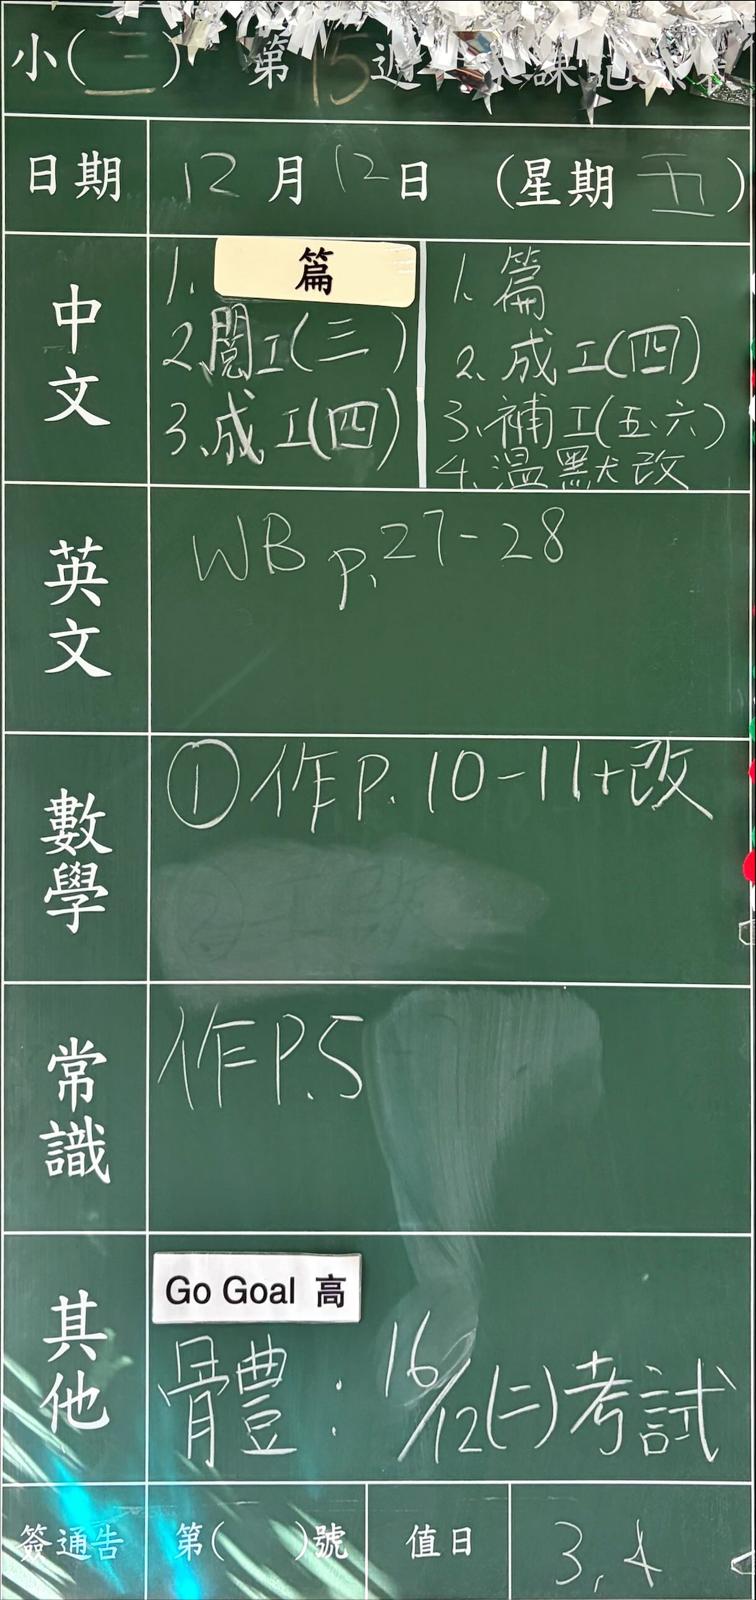 小(二) 第15週
日期 12月12日 (星期五)
中文
1. 篇
2. 閱工(三)
3. 成工(四)
1. 篇
2. 成工(四)
3. 補工(五、六)
4. 溫默改
英文
WB p.27-28
數學
① 作P.10-11+改
常識
作P.5
其他
Go Goal 高
體：16/12(二)考試
簽通告 第( )號 值日 3,4